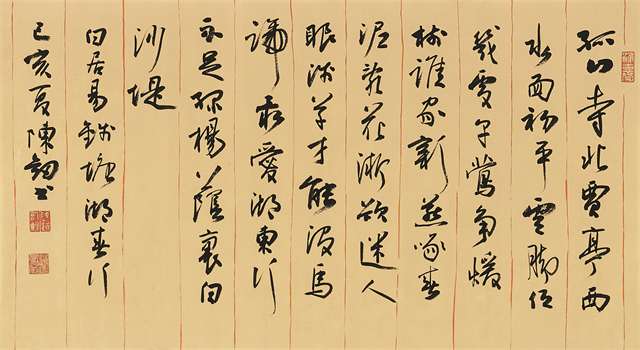 孤山寺北賈亭西
水面初平雲腳低
幾處早鶯爭暖
樹誰家新燕啄春
泥亂花漸欲迷人
眼淺草才能沒馬
蹄最愛湖東行
不足綠楊蔭裏白
沙堤
白居易錢塘湖春行
己亥夏陳書